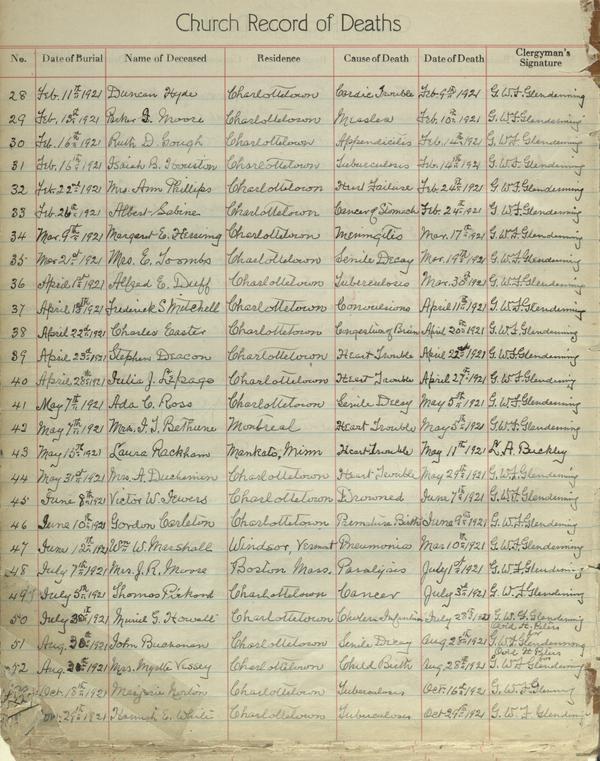 Church Record of Deaths
No. Date of Burial Name of Deceased Residence Cause of Death Date of Death Clergyman's Signature
28 Feb. 11th 1921 Duncan Hyde Charlottetown Cardic Trouble Feb 9th 1921 G. W. F. Glendenning
29 Feb. 13th 1921 Parker G. Moore Charlottetown Measles Feb 10th 1921 G. W. F. Glendenning
30 Feb. 16th 1921 Ruth D. Gough Charlottetown Appendicitis Feb. 14th 1921 G. W. F. Glendenning
31 Feb. 16th 1921 Isaiah B. Houston Charlottetown Tuberculosis Feb. 14th 1921 G. W. F. Glendenning
32 Feb. 22nd 1921 Mrs. Ann Phillips Charlottetown Heart Failure Feb. 1921 G. W. F. Glendenning
33 Feb. 26th 1921 Albert Sabine Charlottetown Cancer of Stomach Feb. 24th 1921 G. W. F. Glendenning
34 Mar. 9th 1921 Margaret E. Herring Charlottetown Meningitis Mar. 17th 1921 G. W. F. Glendenning
35 Mar 21st 1921 Mrs. E. Toombs Charlottetown Senile Decay Mar. 19th 1921 G. W. F. Glendenning
36 April 1st 1921 Alfred E. Duff Charlottetown Tuberculosis Mar. 30th 1921 G. W. F. Glendenning
37 April 13th 1921 Frederick S. Mitchell Charlottetown Convulsions April 11th 1921 G. W. F. Glendenning
38 April 22nd 1921 Charles Easter Charlottetown Congestion of Brain April 20th 1921 G. W. F. Glendenning
39 April 23rd 1921 Stephen Deacon Charlottetown Heart Trouble April 22nd 1921 G. W. F. Glendenning
40 April 28th 1921 Julia J. Lepage Charlottetown Heart Trouble April 27th 1921 G. W. F. Glendenning
41 May 7th 1921 Ada C. Ross Charlottetown Senile Decay May 5th 1921 G. W. F. Glendenning
42 May 7th 1921 Mrs. J. T. Bethune Montreal Heart Trouble May 5th 1921 G. W. F. Glendenning
43 May 15th 1921 Laura Rackham Mankato, Minn Heart trouble May 11th 1921 L. A. Buckley
44 May 31st 1921 Mrs. A. Duchemin Charlottetown Heart Trouble May 29th 1921 G. W. F. Glendenning
45 June 8th 1921 Victor W. Jewers Charlottetown Drowned June 7th 1921 G. W. F. Glendenning
46 June 10th 1921 Gordon Carleton Charlottetown Premature Birth June 9th 1921 G. W. F. Glendenning
47 June 12th 1921 Wm W. Marshall Windsor, Vermont Pneumonia Mar 10th 1921 G. W. F. Glendenning
48 July 7th 1921 Mrs. J. R. Moore Boston Mass. Paralysis July 1st 1921 G. W. F. Glendenning
49 July 5th 1921 Thomas Pickard Charlottetown Cancer July 3rd 1921 G. W. F. Glendenning
50 July 30th 1921 Muriel G. Howatt Charlottetown Cholera Infantum July 28th 1921 G. W. F. Glendenning
51 Aug. 30th 1921 John Buchanan Charlottetown Senile Decay Aug 28th 1921 G. W. F. Glendenning
52 Aug. 30th 1921 Mrs. Myrtle Vessey Charlottetown Child Birth Aug. 28th 1921 G. W. F. Glendenning
Oct. 18th 1921 Marjorie Charlottetown Tuberculosis Oct. 16th 1921 G. W. F.
1921 Hannah E. White Charlottetown Tuberculosis Oct 29th 1921 G. W. F. Glendenning